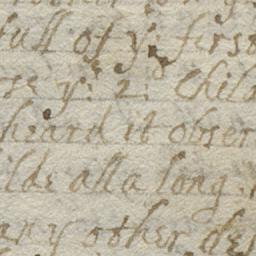 full of yͤ: first
yͤ: 2: Child
heard it obser
ilde alla long
any other des